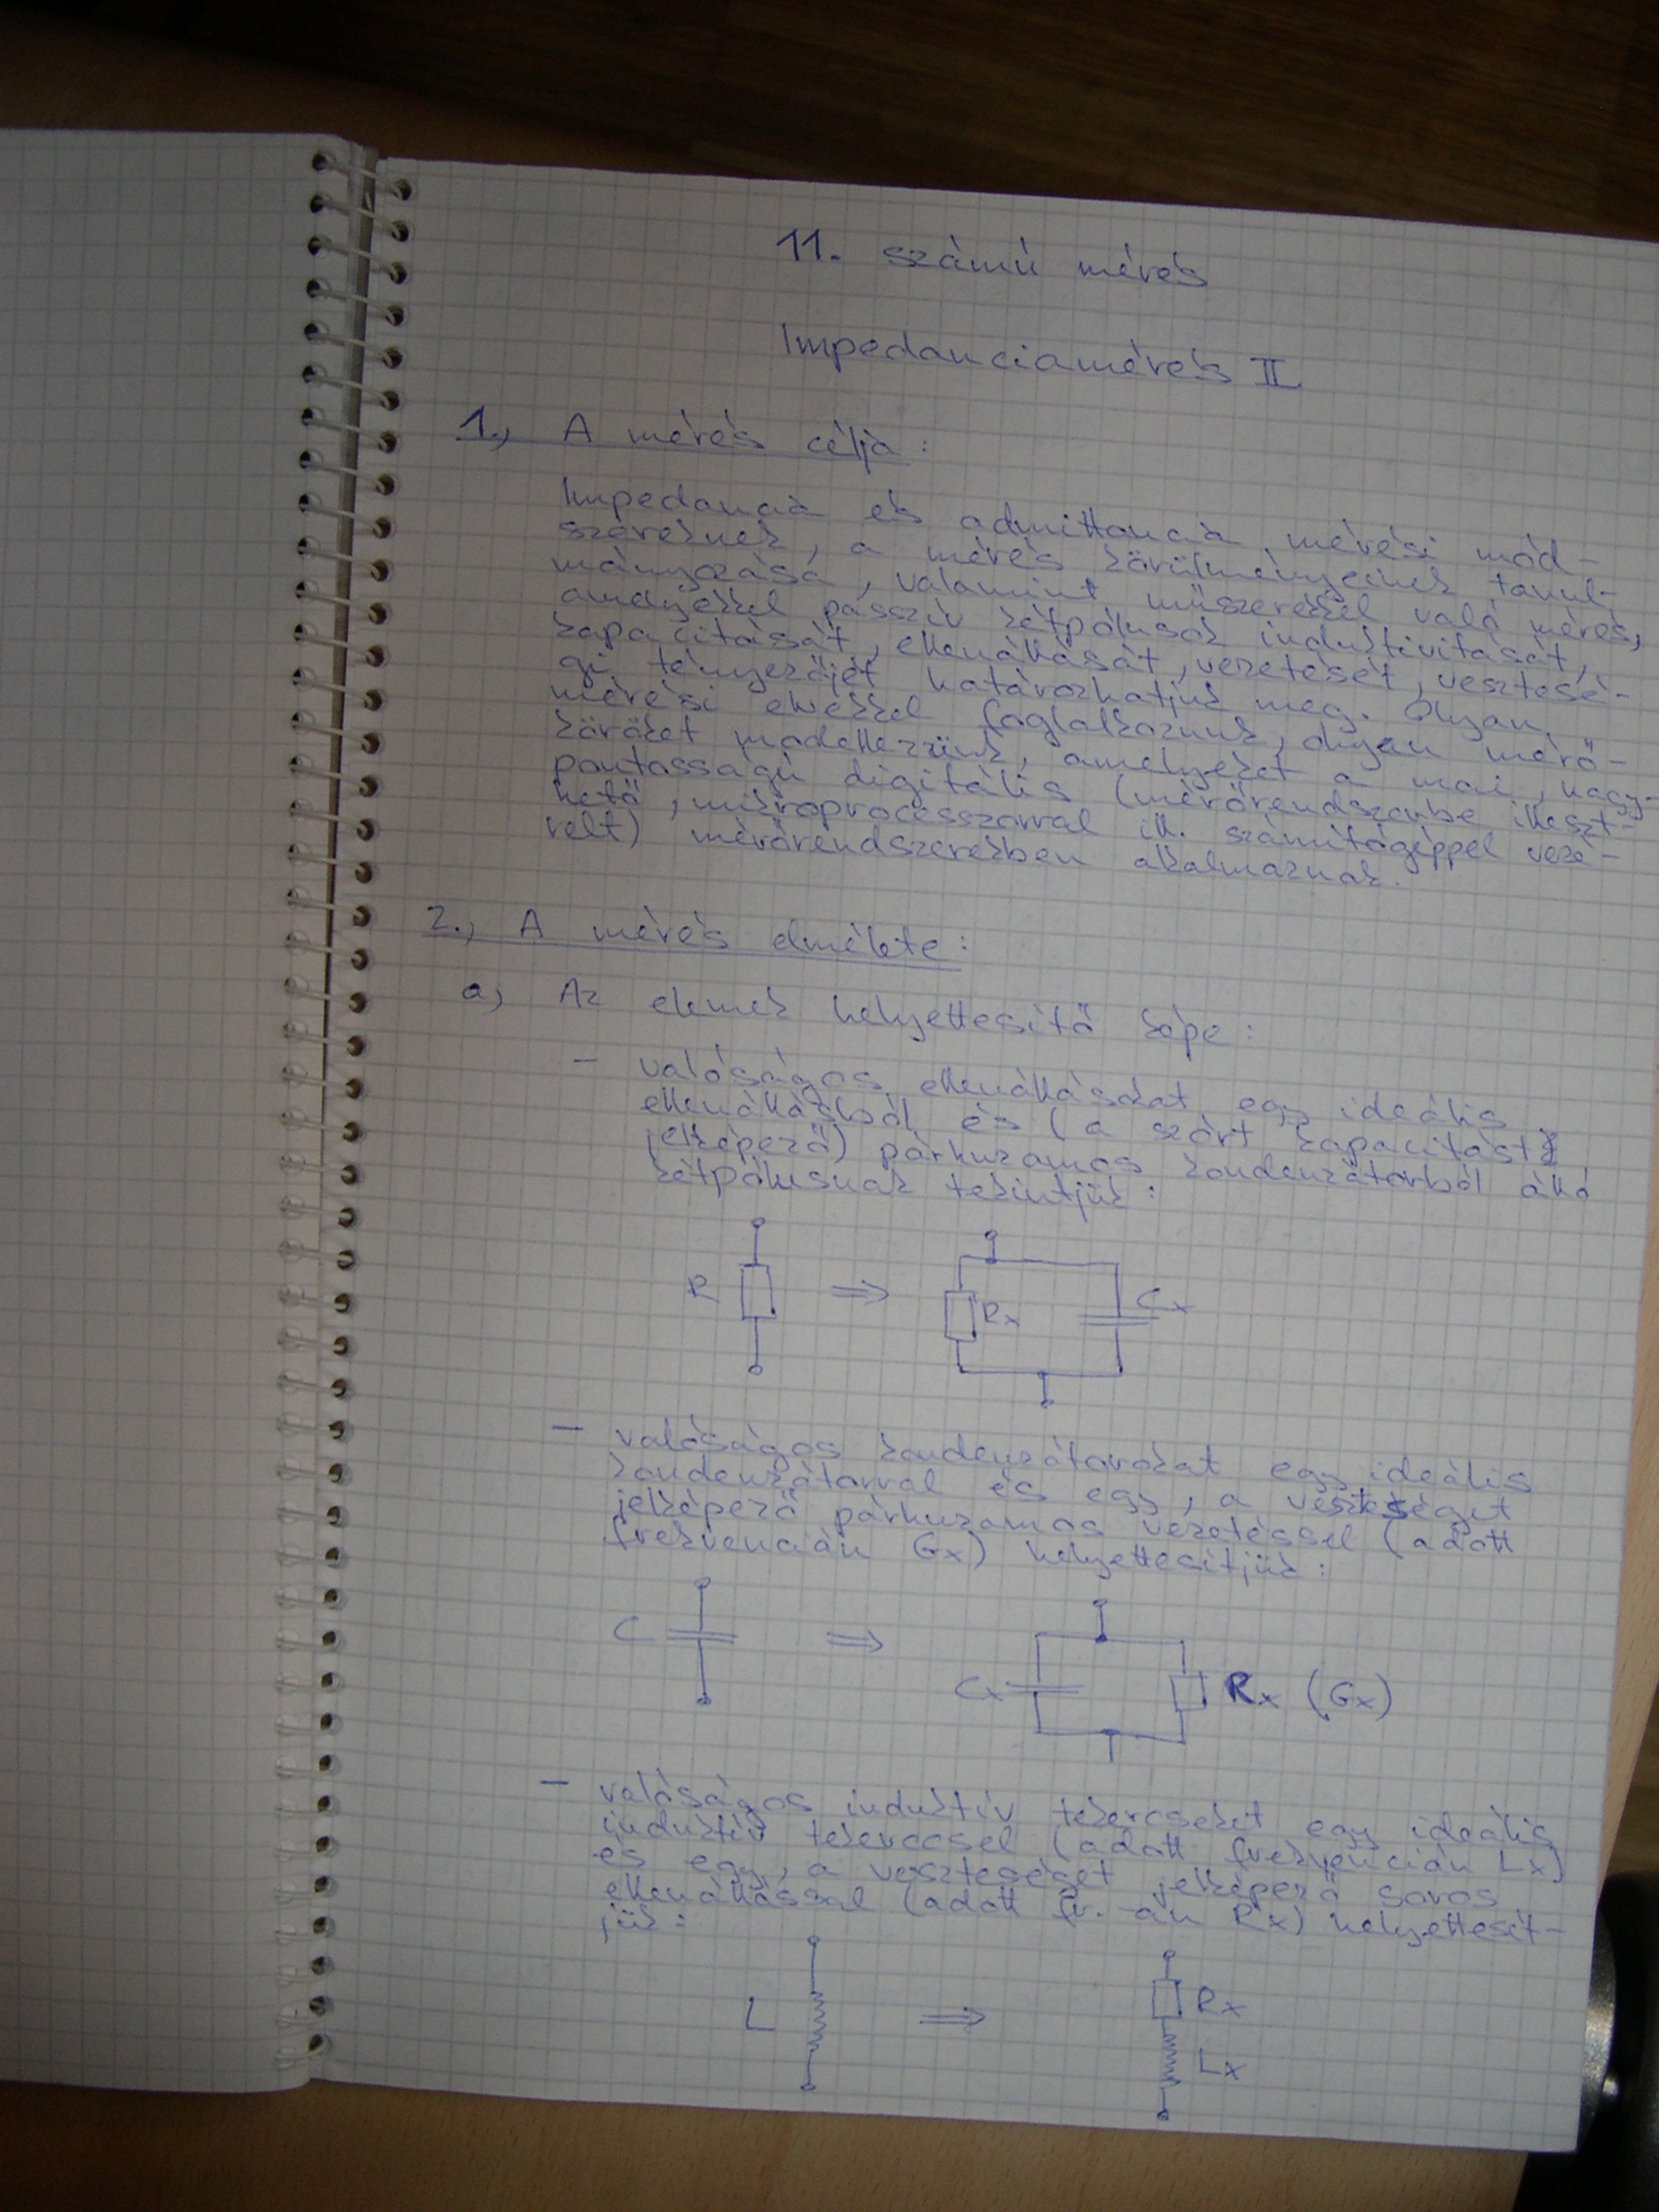 11. számú mérés
Impedanciamérés II
1., A mérés célja:
Impedancia és admittancia mérési mód-
szereknek, a mérés körülményeinek tanul-
mányozása, valamint műszerekkel való mérés,
amelyekkel passzív kétpólusok induktivitását,
kapacitását, ellenállását, vezetését, vesztesé-
gi tényezőjét határozhatjuk meg. Olyan
mérési elvekkel foglalkozunk, olyan mérő-
köröket modellezzünk, amelyeket a mai, nagy-
pontosságú digitális (mérőrendszerbe illeszt-
hető, mikroprocesszorral ill. számítógéppel veze-
relt) mérőrendszerekben alkalmaznak.
2., A mérés elmélete:
a, Az elemek helyettesítő képe:
- valóságos ellenállásokat egy ideális
ellenállásból és (a szórt kapacitást
jelképező) párhuzamos kondenzátorból álló
kétpólusnak tekintjük:
R ⇒ Rx Cx
- valóságos kondenzátorokat egy ideális
kondenzátorral és egy, a veszteséget
jelképező párhuzamos vezetéssel (adott
frekvencián Gx) helyettesítjük:
C ⇒ Cx Rx (Gx)
- valóságos induktív tekercseket egy ideális
induktív tekerccsel (adott frekvencián Lx)
és egy, a veszteséget jelképező soros
ellenállással (adott fr.-án Rx) helyettesít-
jük:
L ⇒ Rx
Lx